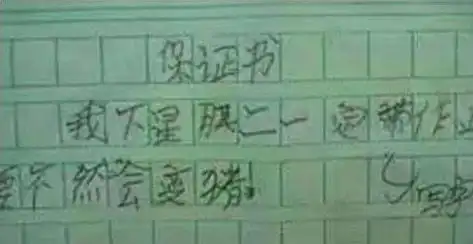 保证书
我下星期二一定带作
要不然会变猪!